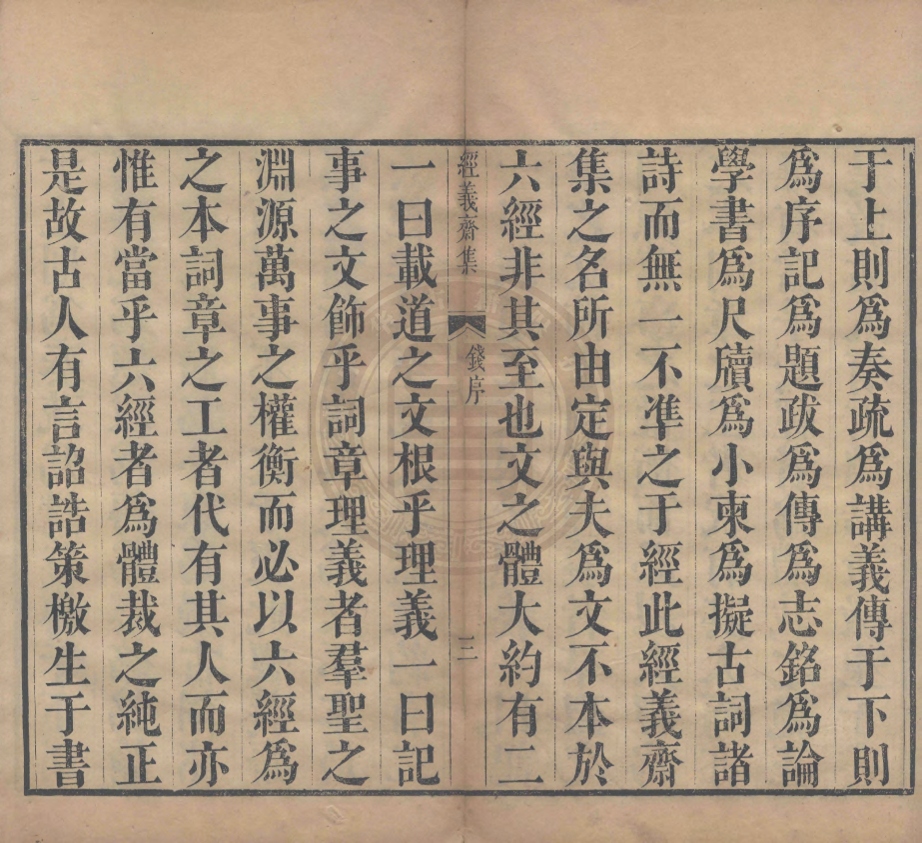 于上則爲奏疏爲講義傳于下則
爲序記爲題䟦爲傳爲志銘爲論
學書爲尺牘爲小柬爲擬古詞諸
詩而無一不準之于經此經義齋
集之名所由定與夫爲文不本於
六經非其至也文之體大約有二
經義齋集 錢序 三
一曰載道之文根乎理義一曰記
事之文飾乎詞章理義者羣聖之
淵源萬事之權衡而必以六經爲
之本詞章之工者代有其人而亦
惟有當乎六經者爲體裁之純正
是故古人有言詔誥策檄生于書